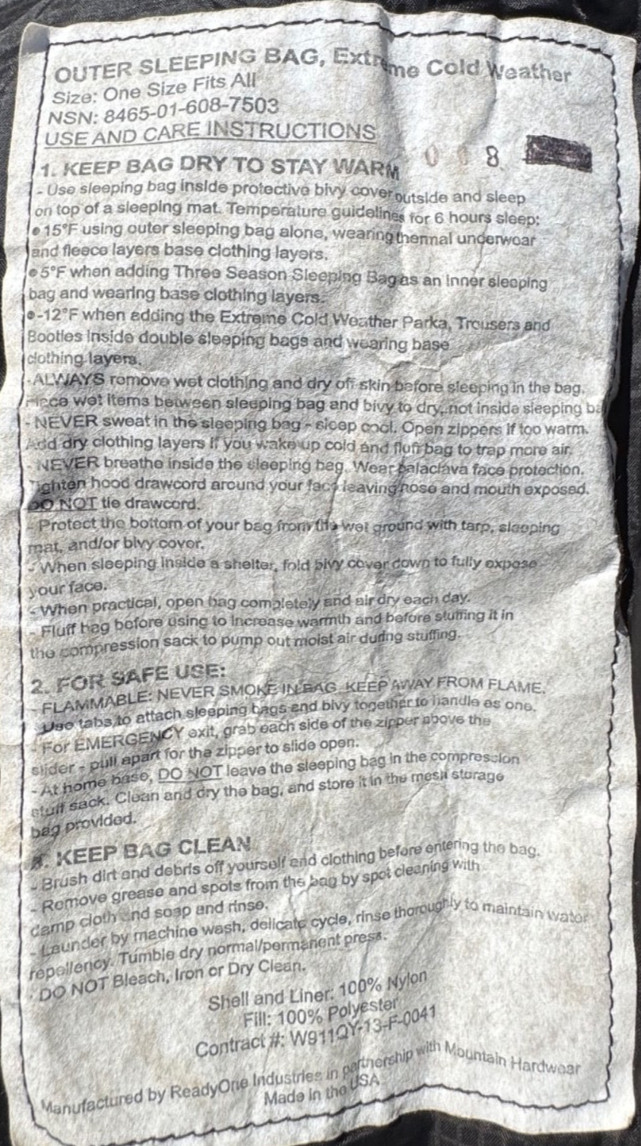 OUTER SLEEPING BAG, Extreme Cold Weather
Size: One Size Fits All
NSN: 8465-01-608-7503
USE AND CARE INSTRUCTIONS
0 0 8
1. KEEP BAG DRY TO STAY WARM
- Use sleeping bag inside protective bivy cover outside and sleep
on top of a sleeping mat. Temperature guidelines for 6 hours sleep:
• 15°F using outer sleeping bag alone, wearing thermal underwear
and fleece layers base clothing layers.
• 5°F when adding Three Season Sleeping Bag as an inner sleeping
bag and wearing base clothing layers.
• -12°F when adding the Extreme Cold Weather Parka, Trousers and
Booties inside double sleeping bags and wearing base
clothing layers.
- ALWAYS remove wet clothing and dry off skin before sleeping in the bag.
Place wet items between sleeping bag and bivy to dry, not inside sleeping ba
- NEVER sweat in the sleeping bag - sleep cool. Open zippers if too warm.
Add dry clothing layers if you wake up cold and fluff bag to trap more air.
- NEVER breathe inside the sleeping bag. Wear balaclava face protection.
Tighten hood drawcord around your face leaving nose and mouth exposed.
DO NOT tie drawcord.
- Protect the bottom of your bag from the wet ground with tarp, sleeping
mat, and/or bivy cover.
- When sleeping inside a shelter, fold bivy cover down to fully expose
your face.
- When practical, open bag completely and air dry each day.
- Fluff bag before using to increase warmth and before stuffing it in
the compression sack to pump out moist air during stuffing.
2. FOR SAFE USE:
- FLAMMABLE: NEVER SMOKE IN BAG. KEEP AWAY FROM FLAME.
- Use tabs to attach sleeping bags and bivy together to handle as one.
- For EMERGENCY exit, grab each side of the zipper above the
slider - pull apart for the zipper to slide open.
- At home base, DO NOT leave the sleeping bag in the compression
stuff sack. Clean and dry the bag, and store it in the mesh storage
bag provided.
3. KEEP BAG CLEAN
- Brush dirt and debris off yourself and clothing before entering the bag.
- Remove grease and spots from the bag by spot cleaning with
damp cloth and soap and rinse.
- Launder by machine wash, delicate cycle, rinse thoroughly to maintain water
repellency. Tumble dry normal/permanent press.
- DO NOT Bleach, Iron or Dry Clean.
Shell and Liner: 100% Nylon
Fill: 100% Polyester
Contract #: W911QY-13-F-0041
Manufactured by ReadyOne Industries in partnership with Mountain Hardwear
Made in the USA